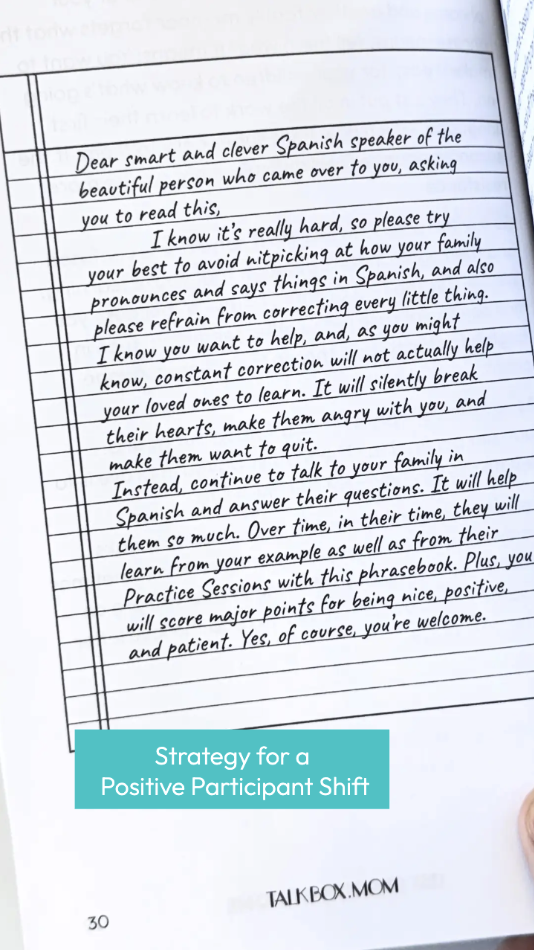 Dear smart and clever Spanish speaker of the
beautiful person who came over to you, asking
you to read this,
I know it's really hard, so please try
your best to avoid nitpicking at how your family
pronounces and says things in Spanish, and also
please refrain from correcting every little thing.
I know you want to help, and, as you might
know, constant correction will not actually help
your loved ones to learn. It will silently break
their hearts, make them angry with you, and
make them want to quit.
Instead, continue to talk to your family in
Spanish and answer their questions. It will help
them so much. Over time, in their time, they will
learn from your example as well as from their
Practice Sessions with this phrasebook. Plus, you
will score major points for being nice, positive,
and patient. Yes, of course, you're welcome.
Strategy for a
Positive Participant Shift
TALKBOX.MOM
30